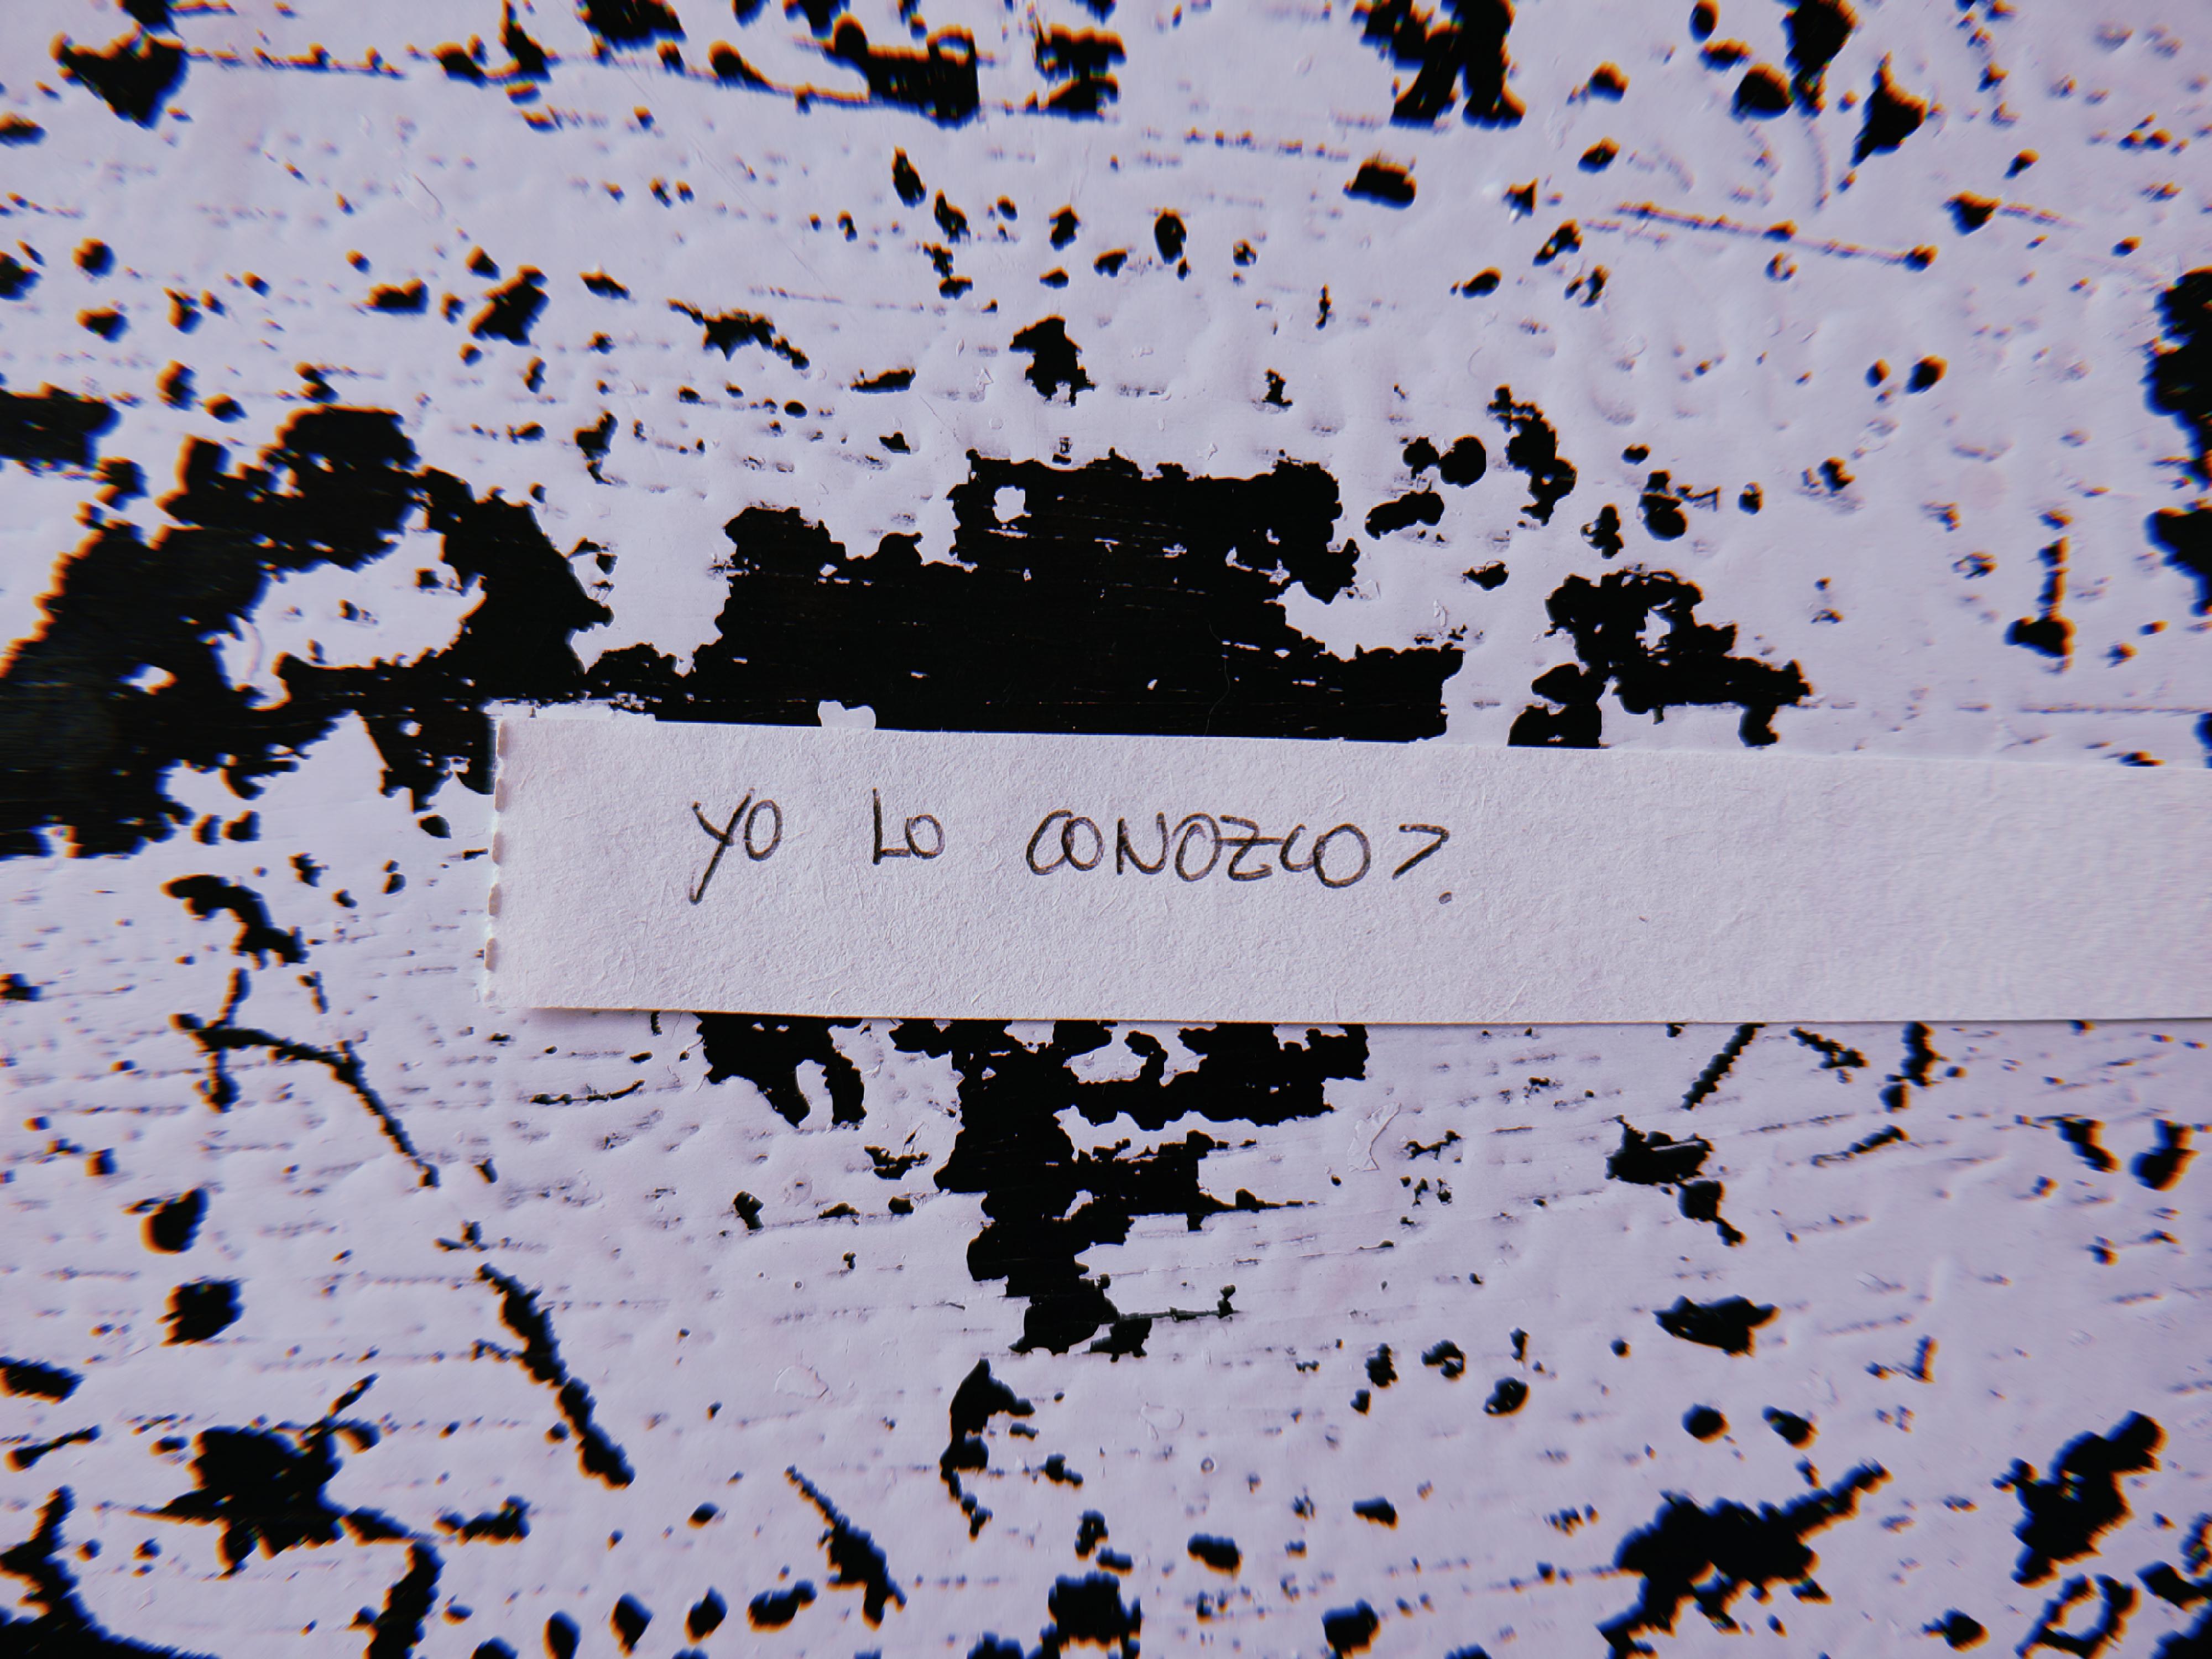 YO LO CONOZCO?